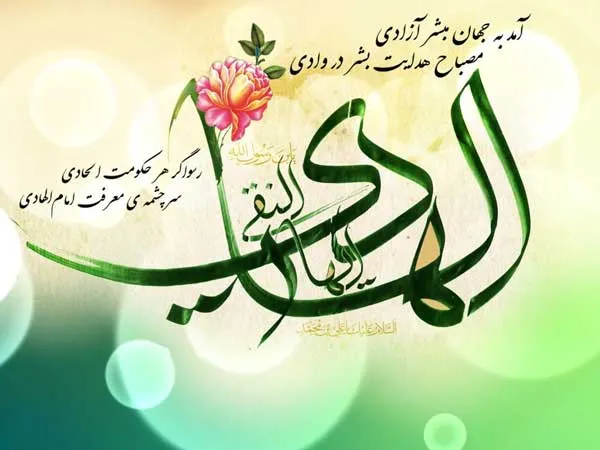 آمد به جهان مبشر آزادی
مصباح هدایت بشر در وادی
یابن رسول الله
رسواگر هر حکومت الحادی
سرچشمه ی معرفت امام الهادی
ایها
الهادی
النقی
السلام علیک یا علی بن محمد